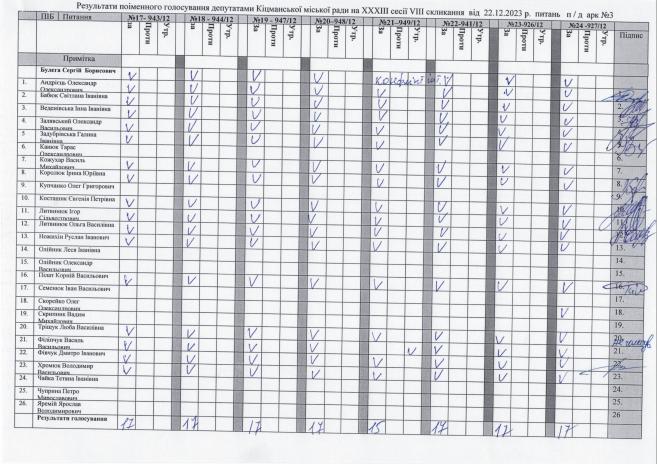 Результати поіменного голосування депутатами Кіцманської міської ради на XXXIII сесії VIII скликання від 22.12.2023 р. питань п / д арк №3
ПІБ Питання №17- 943/12 №18 - 944/12 №19 - 947/12 №20-948/12 №21-949/12 №22-941/12 №23-926/12 №24 -927/12 Підпис
За Проти Утр. За Проти Утр. За Проти Утр. За Проти Утр. За Проти Утр. За Проти Утр. За Проти Утр. За Проти Утр.
Примітка
Булега Сергій Борисович V V V V конфлікт інт. V V V
1. Андрієць Олександр Олександрович V V V V V V V V
2. Бабюк Світлана Іванівна V V V V V V V V 2.
3. Веденівська Інна Іванівна V V V V V V V V 3.
4. Залявський Олександр Васильович V V V V V V V V
5. Задубрівська Галина Іванівна V V V V V V V V
6. Канюк Тарас Олександрович 6.
7. Кожухар Василь Михайлович V V V V V V V V 7.
8. Королюк Ірина Юріївна V V V V V V V V 8.
9. Купчанко Олег Григорович 9.
10. Косташик Євгенія Петрівна V V V V V V V V 10.
11. Литвинюк Ігор Сільвестрович V V V V V V V V 11.
12. Литвинюк Ольга Василівна V V V V V V V V 12.
13. Ножихін Руслан Іванович V V V V V V V V 13.
14. Олійник Леся Іванівна 14.
15. Олійник Олександр Васильович 15.
16. Пілат Корній Васильович V V V V V V V V 16.
17. Семенюк Іван Васильович 17.
18. Скорейко Олег Олександрович 18.
19. Скрипник Вадим Михайлович 19.
20. Тріщук Люба Василівна V V V V V V V V 20.
21. Філіпчук Василь Васильович V V V V V V V V 21.
22. Фівчук Дмитро Іванович V V V V V V V V 22.
23. Хромюк Володимир Васильович V V V V V V V V 23.
24. Чайка Тетяна Іванівна 24.
25. Чуприна Петро Мирославович 25.
26. Яремій Ярослав Володимирович 26
Результати голосування 17 17 17 17 15 17 17 17